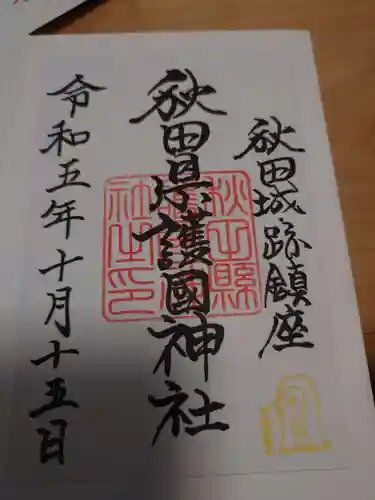 秋田城跡鎮座
秋田県護國神社
秋田縣
護國神
社之印
令和五年十月十五日